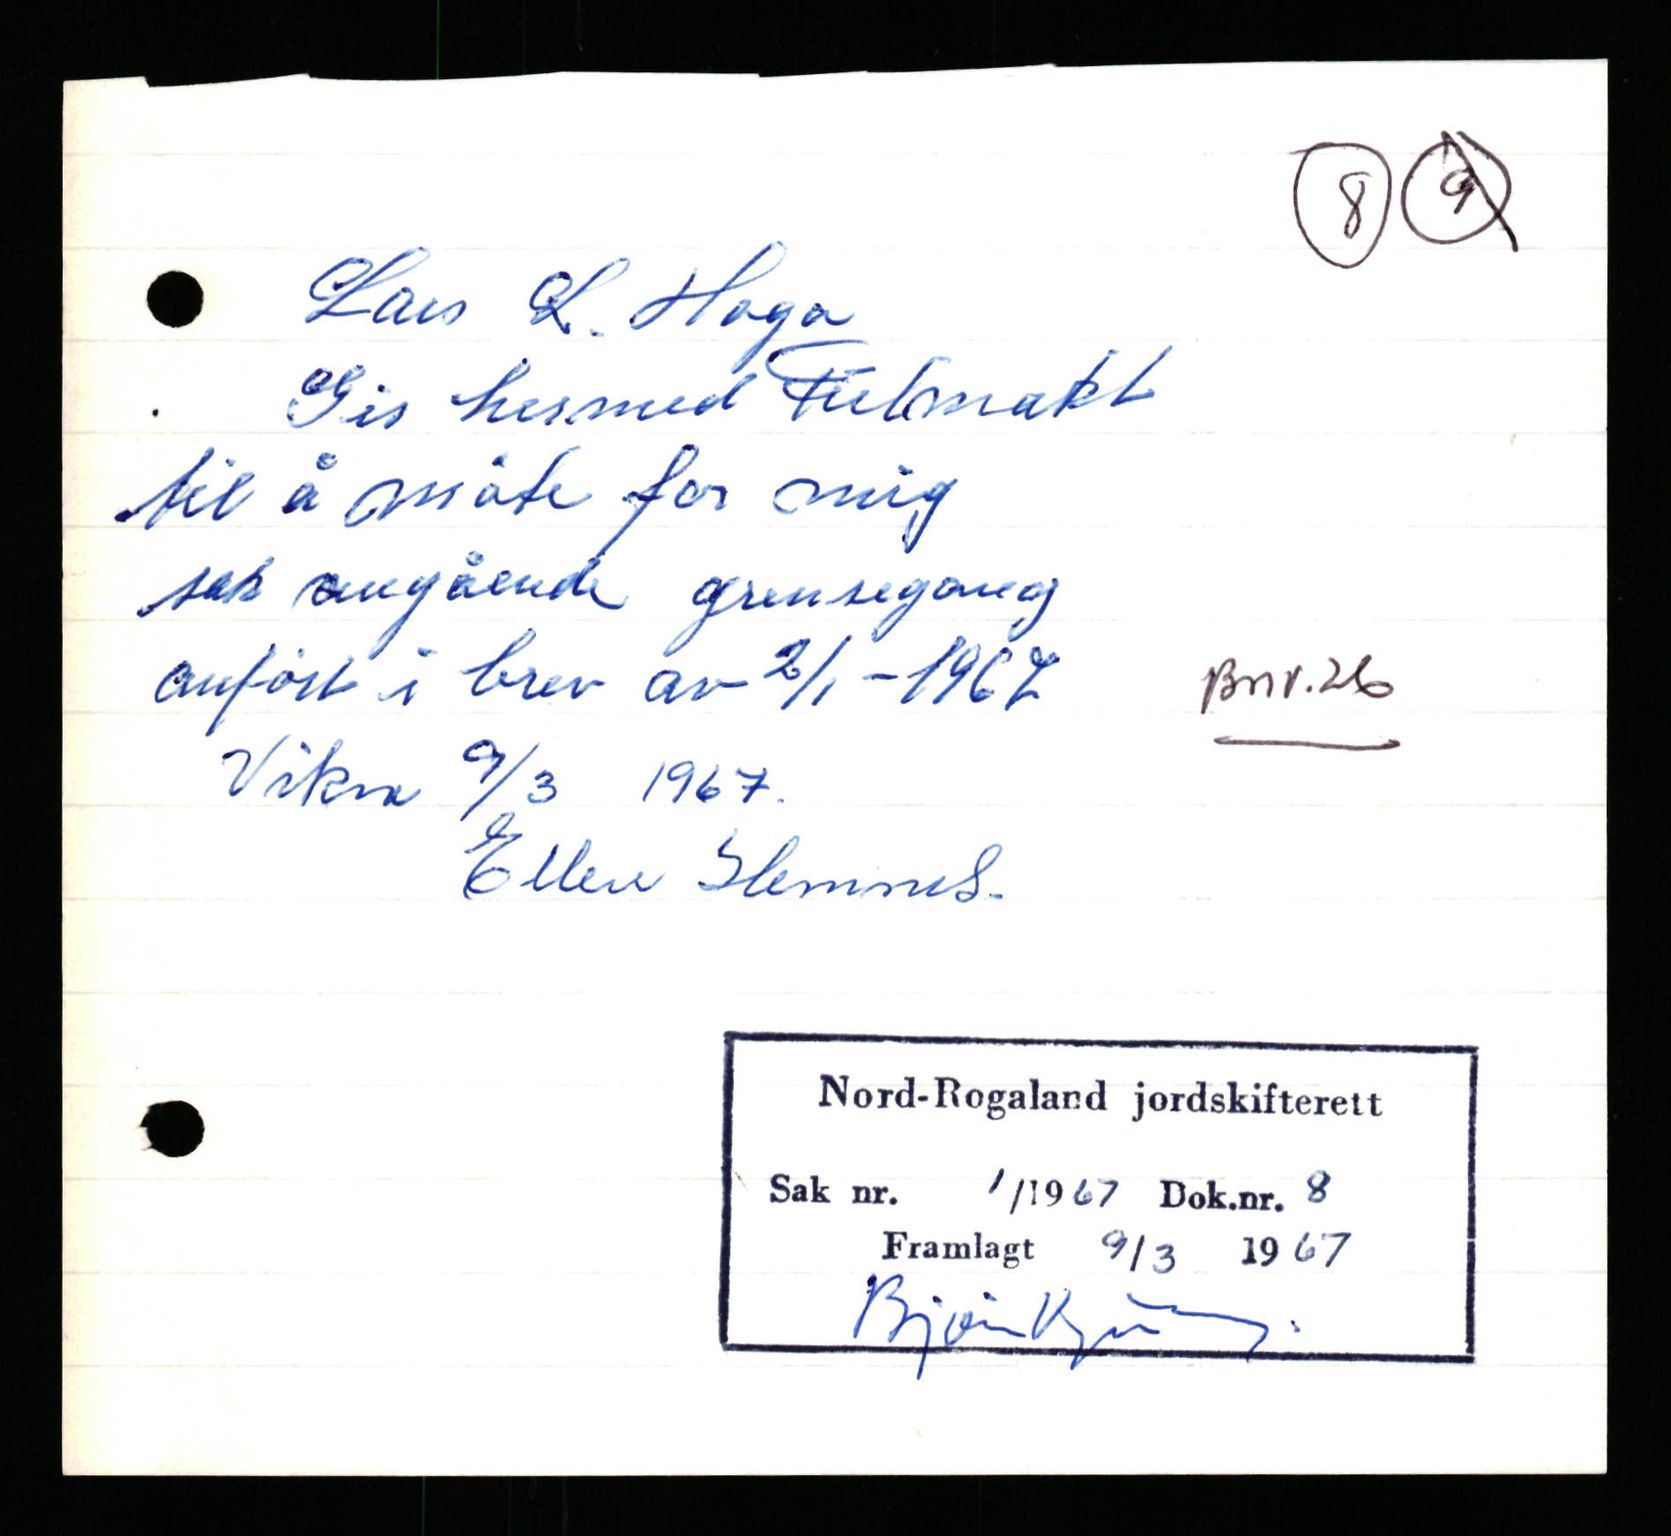 8 9
Lars L. Haga
Gis hermed Fulmakt
til å møte for mig
sak angående grensegang
anført i brev av 2/1 - 1967
Bnr. 26
Vikra 9/3 1967.
Ellen
Nord-Rogaland jordskifterett
Sak nr. 1/1967 Dok.nr. 8
Framlagt 9/3 1967